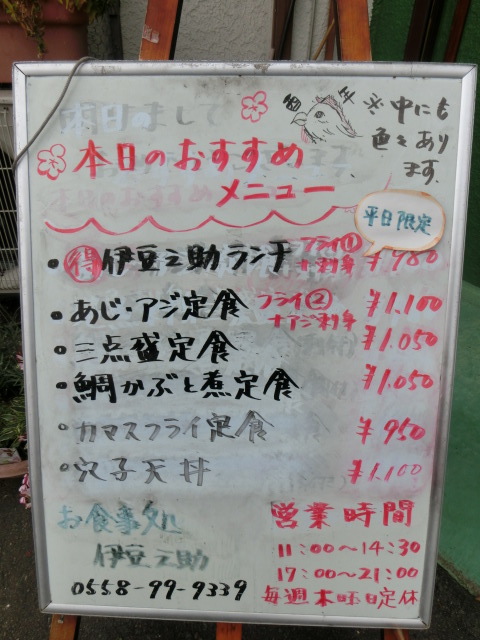 酉年
中にも
色々あり
ます
本日のおすすめ
メニュー
平日限定
・得伊豆之助ランチ フライ① ¥980
・あじ・アジ定食 フライ② ¥1,100
・三点盛定食 ¥1,050
・鯛かぶと煮定食 ¥1,050
・カマスフライ定食 ¥950
・穴子天丼 ¥1,100
お食事処
伊豆之助
0558-99-9339
営業時間
11:00～14:30
17:00～21:00
毎週木曜日定休